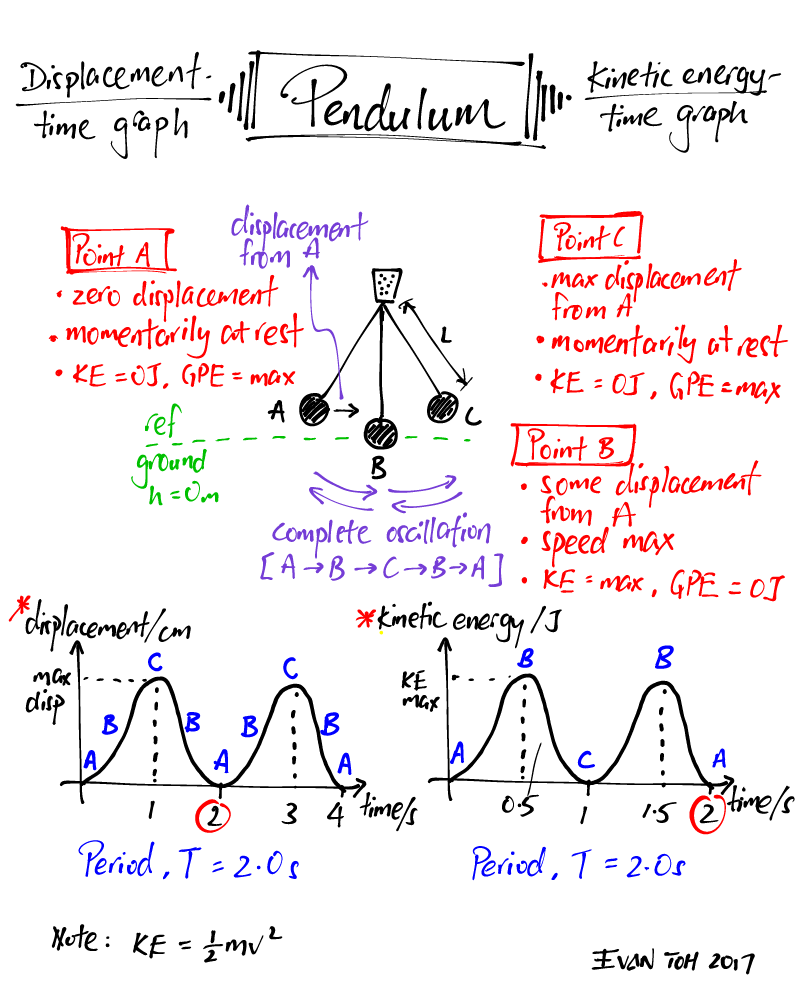 Displacement-
time graph
Pendulum
Kinetic energy-
time graph
Point A
• zero displacement
• momentarily at rest
• KE = 0J, GPE = max
displacement
from A
L
A
B
C
ref
ground
h = 0m
complete oscillation
[A → B → C → B → A]
Point C
• max displacement
from A
• momentarily at rest
• KE = 0J, GPE = max
Point B
• some displacement
from A
• speed max
• KE = max, GPE = 0J
*displacement/cm
max
disp
A
B
C
B
A
B
C
B
A
1
2
3
4
time/s
Period, T = 2.0s
*kinetic energy/J
KE
max
A
B
C
B
A
0.5
1
1.5
2
time/s
Period, T = 2.0s
Note: KE = ½mv²
EVAN TOH 2017